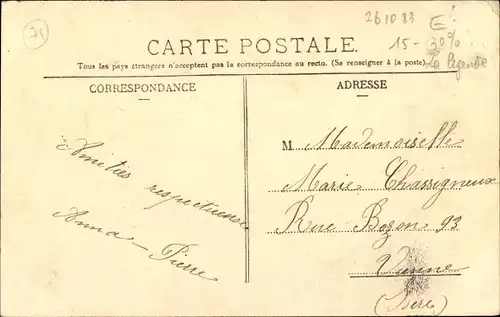 71
261083
E
15-
30%
La légende
CARTE POSTALE.
Tous les pays étrangers n'acceptent pas la correspondance au recto. (Se renseigner à la poste)
CORRESPONDANCE
ADRESSE
Amitiés respectueuses
Anna - Pierre
M Mademoiselle
Marie Chassigneux
Rue Bozon 93
Vienne
(Isère)